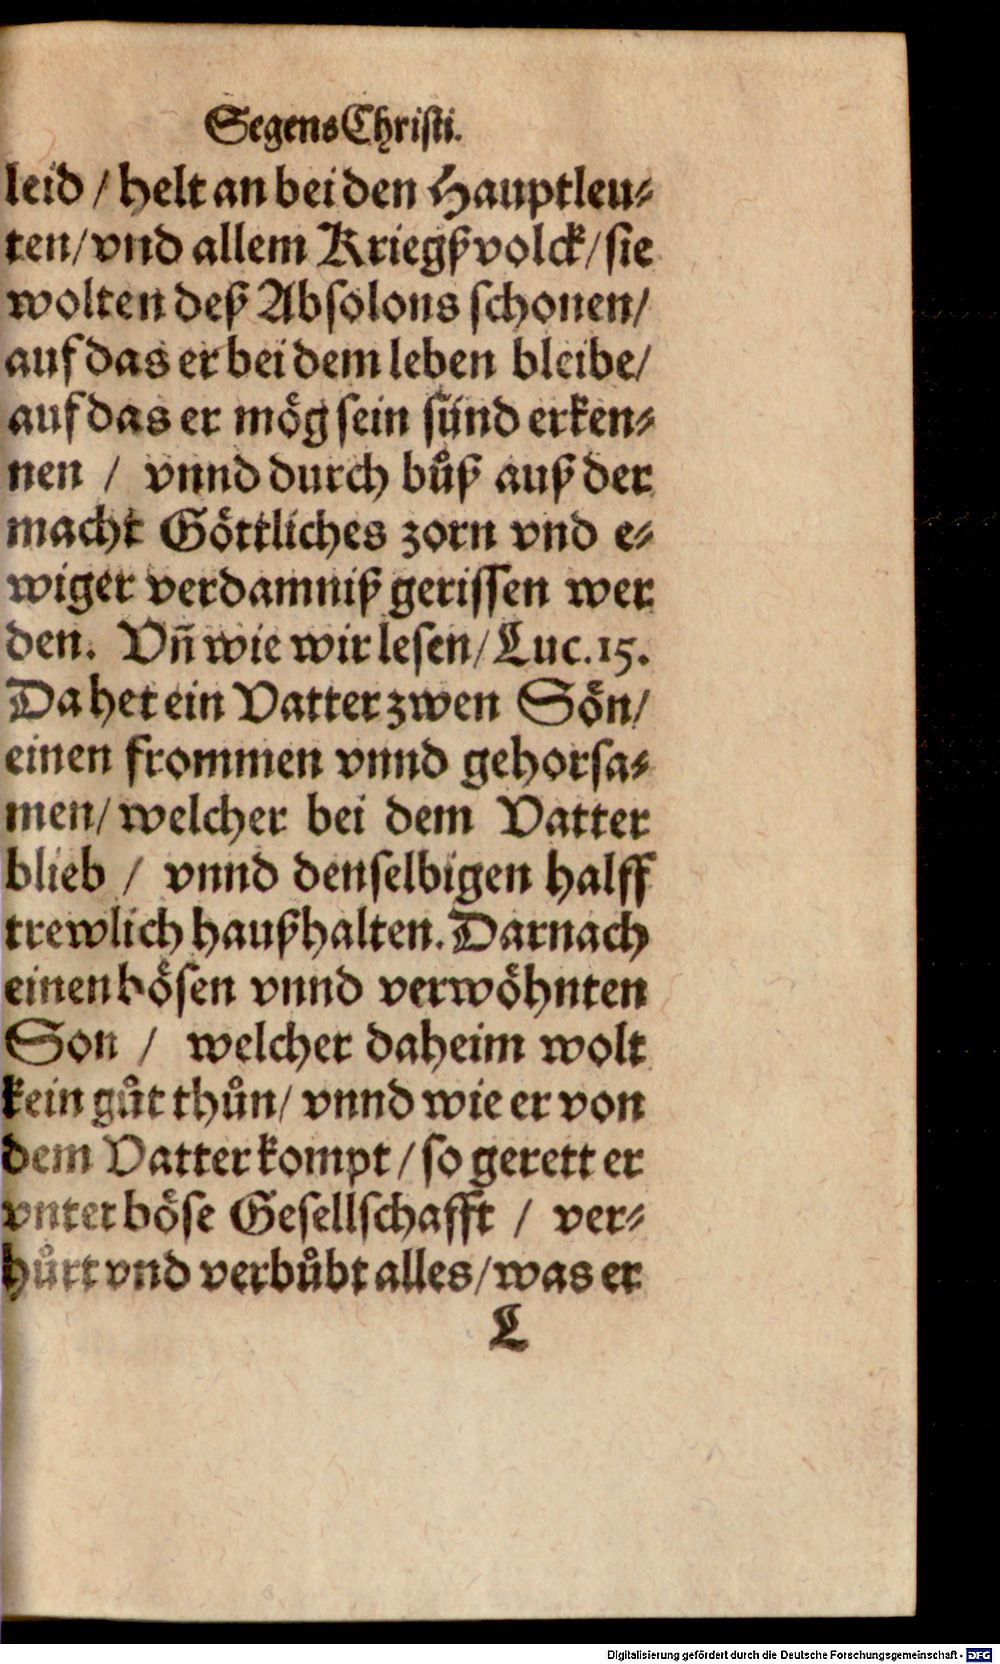 Segens Christi.
leid / helt an bei den Hauptleu⸗
ten/ vnd allem Kriegßvolck/ sie
wolten deß Absolons schonen/
auf das er bei dem leben bleibe/
auf das er mög sein sünd erken⸗
nen / vnnd durch bůß auß der
macht Göttliches zorn vnd e⸗
wiger verdamniß gerissen wer
den. Vñ wie wir lesen/ Luc. 15.
Da het ein Vatter zwen Sön/
einen frommen vnnd gehorsa⸗
men/ welcher bei dem Vatter
blieb / vnnd denselbigen halff
trewlich haußhalten. Darnach
einen bösen vnnd verwöhnten
Son / welcher daheim wolt
kein gůt thůn/ vnnd wie er von
dem Vatter kompt / so gerett er
vnter böse Gesellschafft / ver⸗
hůrt vnd verbůbt alles/ was er
L
Digitalisierung gefördert durch die Deutsche Forschungsgemeinschaft - DFG